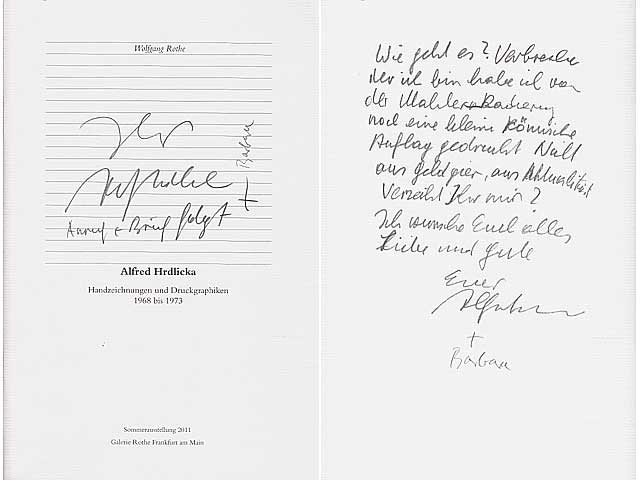 Wolfgang Rothe
Ihr
Barbara
+
Anruf + Brief folgt
Alfred Hrdlicka
Handzeichnungen und Druckgraphiken
1968 bis 1973
Sommerausstellung 2011
Galerie Rothe Frankfurt am Main
Wie geht es? Verbrecher
der ich bin habe ich von
der Mahler-Radierung
noch eine kleine Römische
Auflag gedruckt Nicht
aus Geldgier, aus Aktualität
Verzeiht Ihr mir?
Ich wünsche Euch alles
Liebe und gute
Euer
Alfred
+
Barbara